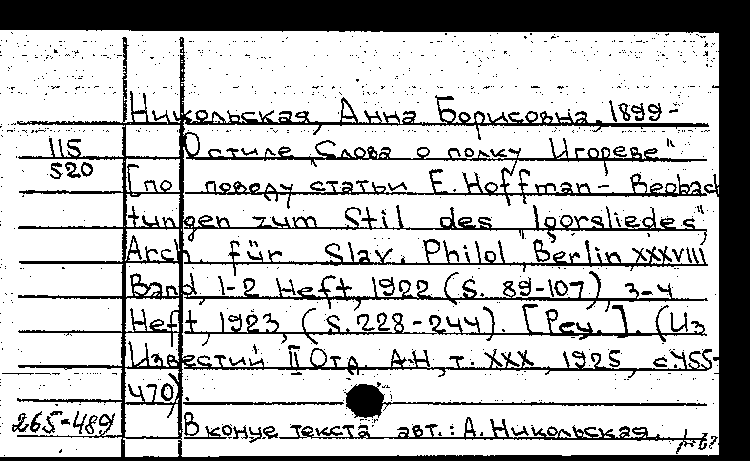 Никольская, Анна Борисовна, 1899-
115
520
О стиле „Слова о полку Игореве"
[по поводу статьи E. Hoffman - Beobach
tungen zum Stil des "Igorsliedes",
Arch. für Slav. Philol, Berlin XXXVIII
Band, 1-2 Heft, 1922 (S. 89-107), 3-4
Heft, 1923, (S. 228-244). [Рец.]. (Из
Известий II Отд. АН, т. XXX, 1925, с. 455-
470).
265-489
В конце текста авт.: А. Никольская.